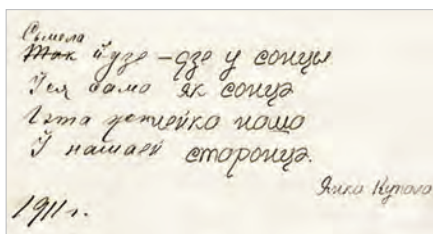 Сьмела
Так йдзе –дзе у сонцы
Уся сама як сонцэ
Гэта наша
У нашай старонцэ.
Янка Купала
1911 г.